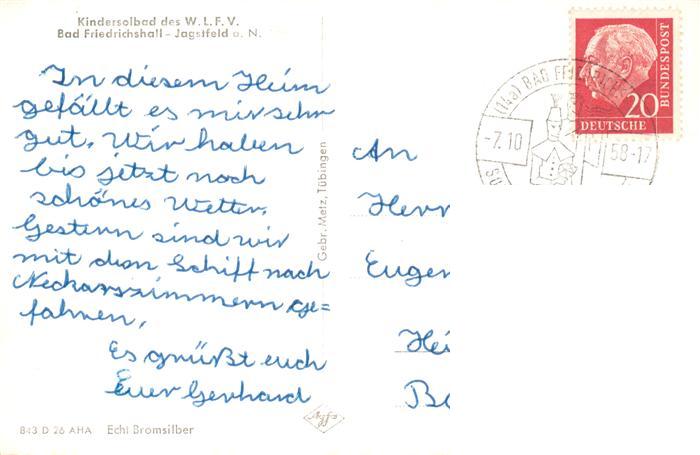 Kindersolbad des W.L.F.V.
Bad Friedrichshall – Jagstfeld a. N.
In diesem Heim
gefällt es mir sehr
gut. Wir haben
bis jetzt noch
schönes Wetter.
Gestern sind wir
mit dem Schiff nach
Neckarzimmern ge=
fahren.
Es grüßt euch
Euer Gerhard
843 D 26 AHA Echt Bromsilber
Gebr. Metz, Tübingen
Agfa
An
Herr
Eugen
Hei
Be
(14a) BAD FRIEDRICH
-7.10
58-17
20
DEUTSCHE
BUNDESPOST